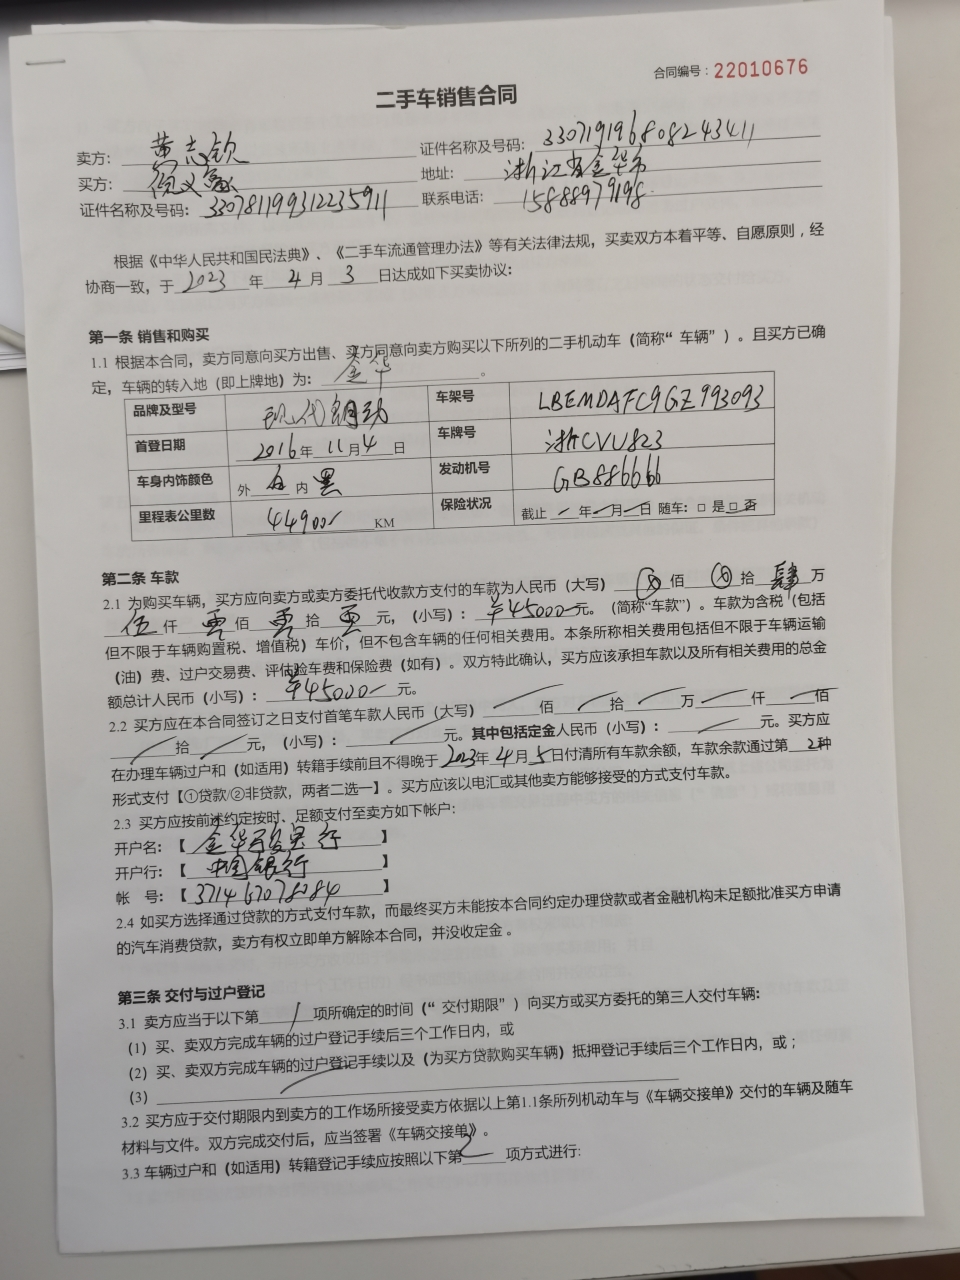 合同编号：22010676
二手车销售合同
卖方：黄志钦 证件名称及号码：330719196808243411
买方：倪义 地址：浙江省金华市
证件名称及号码：330781199312235911 联系电话：15888979198
根据《中华人民共和国民法典》、《二手车流通管理办法》等有关法律法规，买卖双方本着平等、自愿原则，经
协商一致，于 2023 年 4 月 3 日达成如下买卖协议：
第一条 销售和购买
1.1 根据本合同，卖方同意向买方出售、买方同意向卖方购买以下所列的二手机动车（简称“车辆”）。且买方已确
定，车辆的转入地（即上牌地）为：金华。
品牌及型号 现代朗动 车架号 LBEMDAFC9GZ993093
首登日期 2016年11月4日 车牌号 浙CVU823
车身内饰颜色 外 白 内 黑 发动机号 GB886666
里程表公里数 44900 KM 保险状况 截止 年 月 日 随车：□ 是 □ 否
第二条 车款
2.1 为购买车辆，买方应向卖方或卖方委托代收款方支付的车款为人民币（大写） 佰 拾 肆 万
伍 仟 零 佰 零 拾 零 元，（小写）：￥45000元。（简称“车款”）。车款为含税（包括
但不限于车辆购置税、增值税）车价，但不包含车辆的任何相关费用。本条所称相关费用包括但不限于车辆运输
（油）费、过户交易费、评估验车费和保险费（如有）。双方特此确认，买方应该承担车款以及所有相关费用的总金
额总计人民币（小写）：￥45000 元。
2.2 买方应在本合同签订之日支付首笔车款人民币（大写） 佰 拾 万 仟 佰
拾 元，（小写）： 元。其中包括定金人民币（小写）： 元。买方应
在办理车辆过户和（如适用）转籍手续前且不得晚于2023年4月5日付清所有车款余额，车款余款通过第 2 种
形式支付【①贷款/②非贷款，两者二选一】。买方应该以电汇或其他卖方能够接受的方式支付车款。
2.3 买方应按前述约定按时、足额支付至卖方如下帐户：
开户名：【金华 行】
开户行：【中国银行】
帐 号：【371467078284】
2.4 如买方选择通过贷款的方式支付车款，而最终买方未能按本合同约定办理贷款或者金融机构未足额批准买方申请
的汽车消费贷款，卖方有权立即单方解除本合同，并没收定金。
第三条 交付与过户登记
3.1 卖方应当于以下第 1 项所确定的时间（“交付期限”）向买方或买方委托的第三人交付车辆：
（1）买、卖双方完成车辆的过户登记手续后三个工作日内，或
（2）买、卖双方完成车辆的过户登记手续以及（为买方贷款购买车辆）抵押登记手续后三个工作日内，或；
（3）
3.2 买方应于交付期限内到卖方的工作场所接受卖方依据以上第1.1条所列机动车与《车辆交接单》交付的车辆及随车
材料与文件。双方完成交付后，应当签署《车辆交接单》。
3.3 车辆过户和（如适用）转籍登记手续应按照以下第 2 项方式进行：